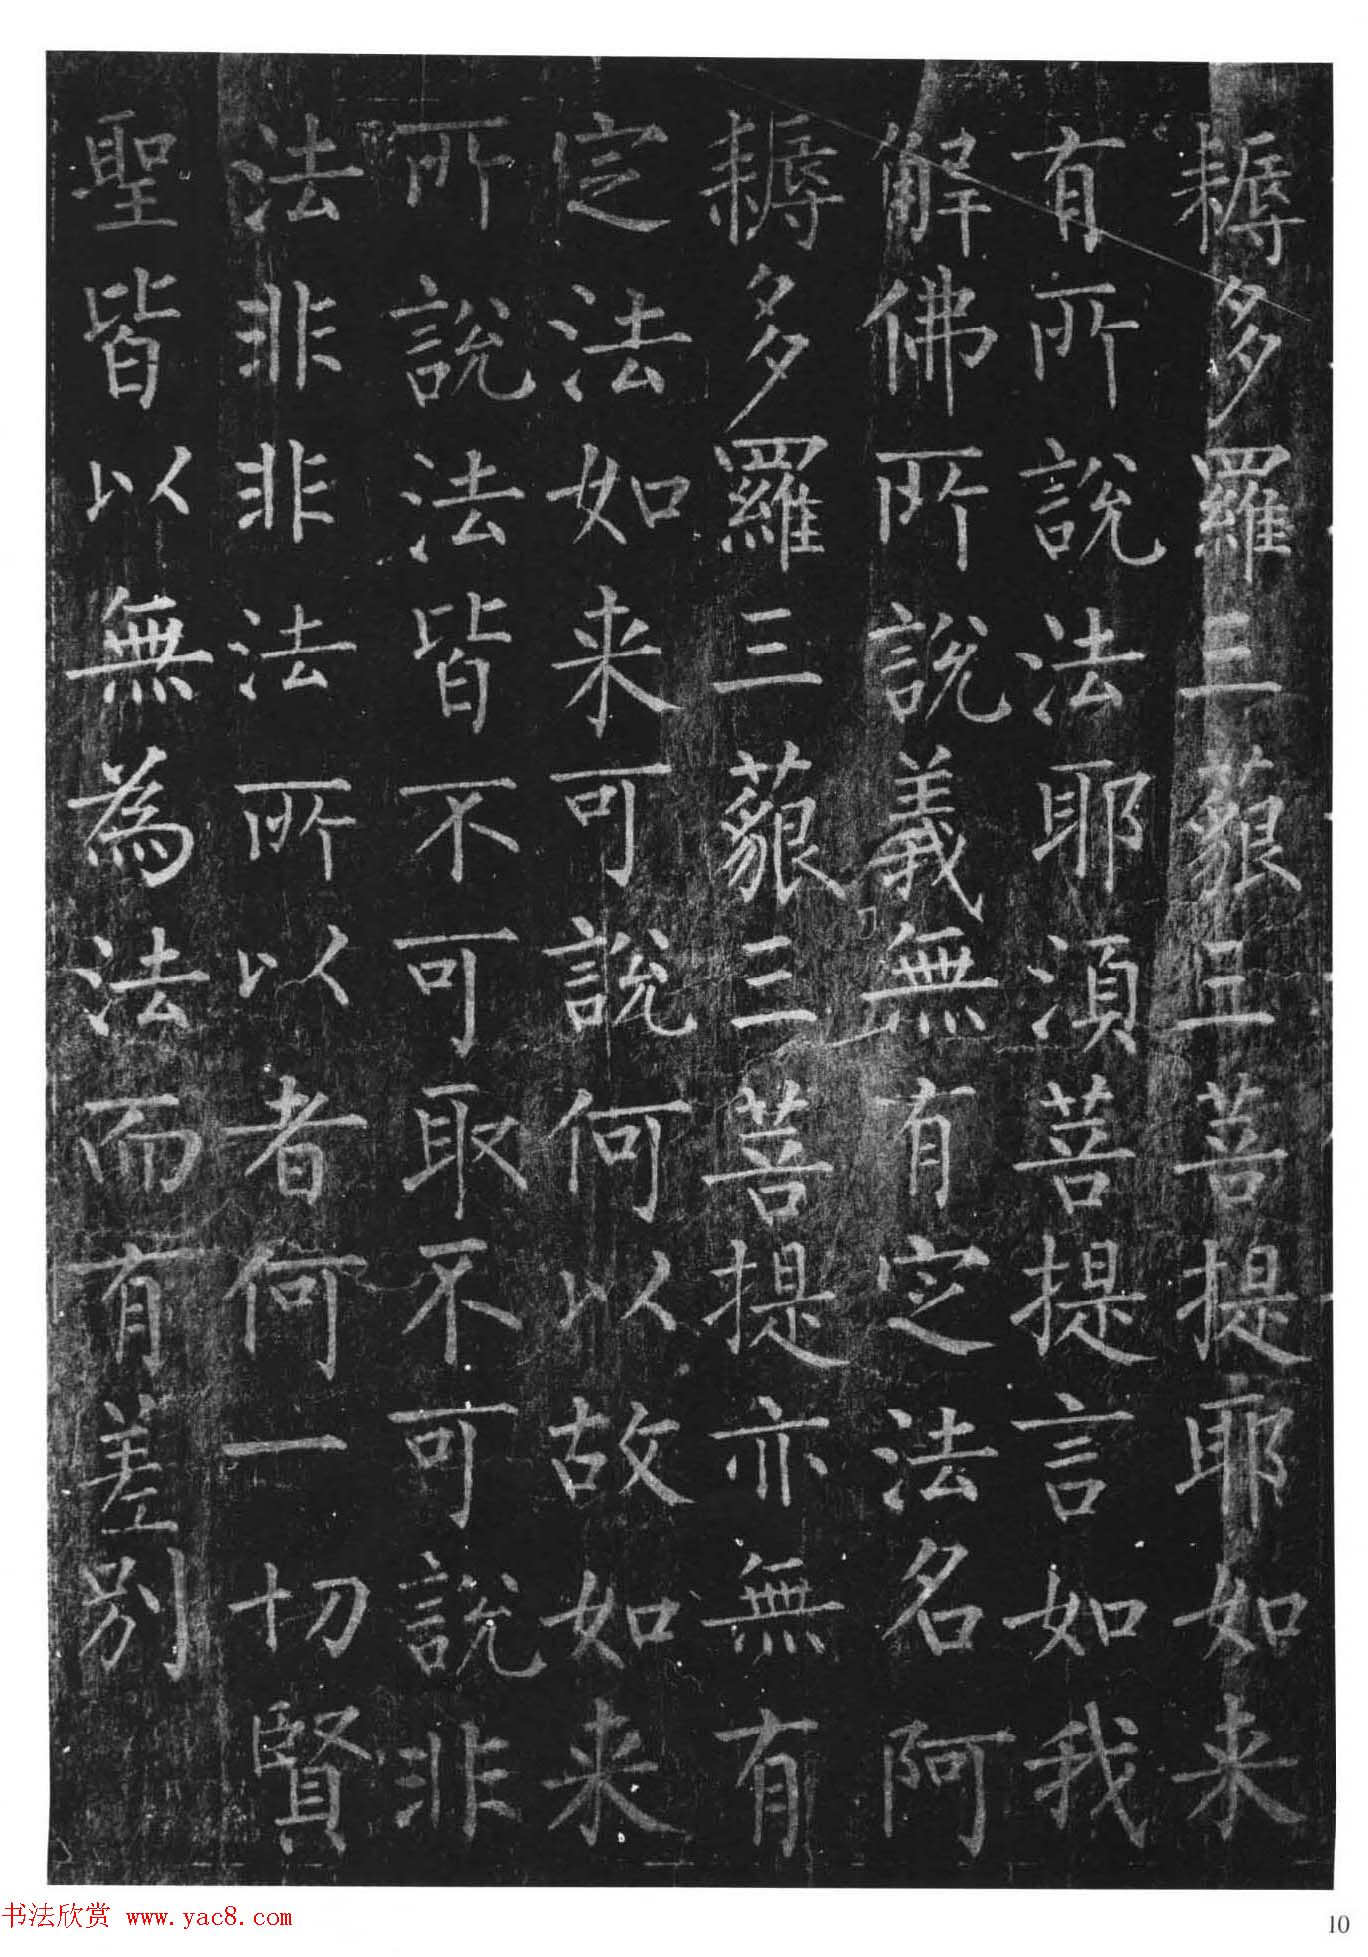 耨多羅三藐三菩提耶如来
有所說法耶須菩提言如我
解佛所說義無有定法名阿
耨多羅三藐三菩提亦無有
定法如来可說何以故如来
所說法皆不可取不可說非
法非非法所以者何一切賢
聖皆以無為法而有差別
书法欣赏 www.yac8.com
10